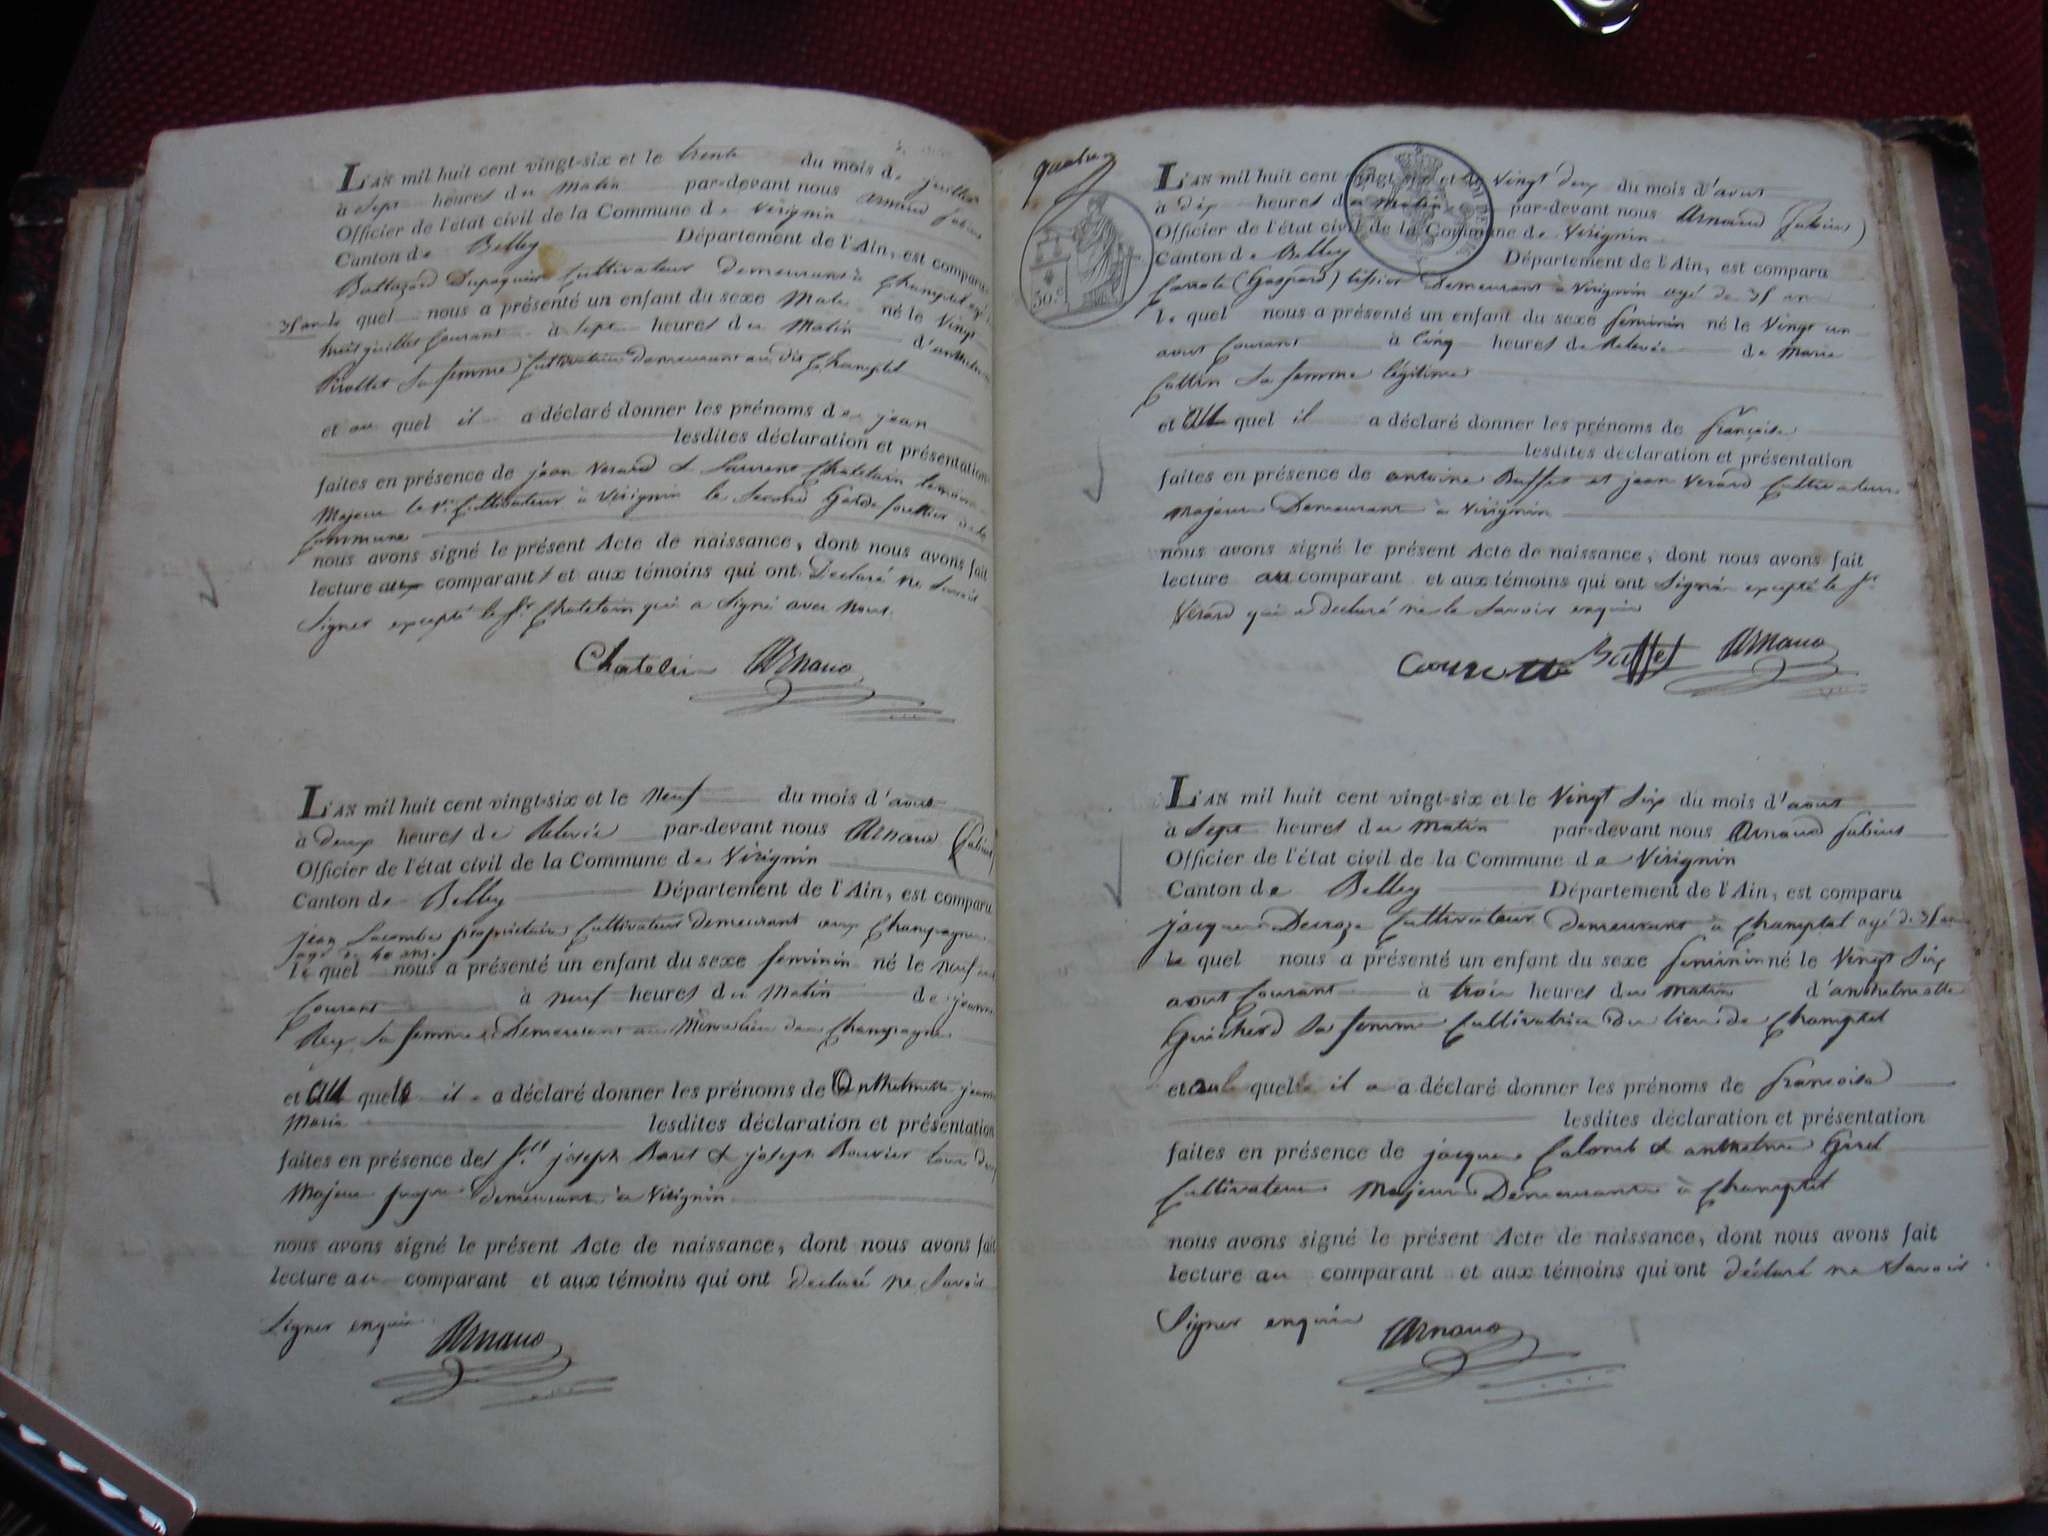 L'AN mil huit cent vingt-six et le trente du mois de juillet
à sept heures du Matin par-devant nous Arnaud fabius
Officier de l'état civil de la Commune de Virignin
Canton de Belley Département de l'Ain, est comparu
Baltazard Dupaquier Cultivateur demeurant à Champtel agé
35 ans le quel nous a présenté un enfant du sexe Male né le Vingt
huit juillet Courant à sept heures du Matin d'anthelmette
Pirollet Sa femme Cultivatrice demeurant au dit Champtel
et au quel il a déclaré donner les prénoms de jean
lesdites déclaration et présentation
faites en présence de jean Verard & Laurent Chatelain temoins
Majeurs le 1er Cultivateur à Virignin le Second Garde forettier de la
Commune
nous avons signé le présent Acte de naissance, dont nous avons fait
lecture au comparant et aux témoins qui ont Declaré ne Savoir
Signer excepté le Sr Chatelain qui a Signé avec Nous.
Chatelin Arnaud
L'AN mil huit cent vingt-six et le Neuf du mois d'aout
à deux heures de Relevée par-devant nous Arnaud (fabius)
Officier de l'état civil de la Commune de Virignin
Canton de Belley Département de l'Ain, est comparu
jean Lacombe propriétaire Cultivateur demeurant aux Champagne
agé de 40 ans
le quel nous a présenté un enfant du sexe feminin né le neuf aout
Courant à neuf heures du Matin de jeanne
Rey Sa femme Demeurant au Même lieu de Champagne
et au quel il a déclaré donner les prénoms de Anthelmette jeanne
Marie lesdites déclaration et présentation
faites en présence des Srs joseph Baret & joseph Bouvier tous Deux
Majeur demeurant à Virignin
nous avons signé le présent Acte de naissance, dont nous avons fait
lecture au comparant et aux témoins qui ont declaré ne Savoir
Signer enquis
Arnaud
30.c
L'AN mil huit cent vingt-six et le Vingt deux du mois d'aout
à dix heures du matin par-devant nous Arnaud (fabius)
Officier de l'état civil de la Commune de Virignin
Canton de Belley Département de l'Ain, est comparu
(Gaspard) tissier Demeurant à Virignin agé de 35 ans
le quel nous a présenté un enfant du sexe feminin né le Vingt un
aout Courant à Cinq heures de Relevée de Marie
Cattin Sa femme légitime
et au quel il a déclaré donner les prénoms de françoise
lesdites déclaration et présentation
faites en présence de antoine Buffet et jean Verard Cultivateurs
majeurs Demeurant à Virignin
nous avons signé le présent Acte de naissance, dont nous avons fait
lecture au comparant et aux témoins qui ont Signé excepté le Sr
Verard qui a declaré ne le Savoir enquis
Buffet Arnaud
L'AN mil huit cent vingt-six et le Vingt Six du mois d'aout
à Sept heures du Matin par-devant nous Arnaud fabius
Officier de l'état civil de la Commune de Virignin
Canton de Belley Département de l'Ain, est comparu
jacques Decroze Cultivateur demeurant à Champtel agé de 35 ans
le quel nous a présenté un enfant du sexe feminin né le Vingt Six
aout Courant à trois heures du matin d'anthelmette
Guicherd Sa femme Cultivatrice du lieu de Champtel
et au quel il a déclaré donner les prénoms de francoise
lesdites déclaration et présentation
faites en présence de jacques Colomb & anthelme Girel
Cultivateurs Majeurs Demeurants à Champtel
nous avons signé le présent Acte de naissance, dont nous avons fait
lecture au comparant et aux témoins qui ont déclaré ne Savoir
Signer enquis Arnaud